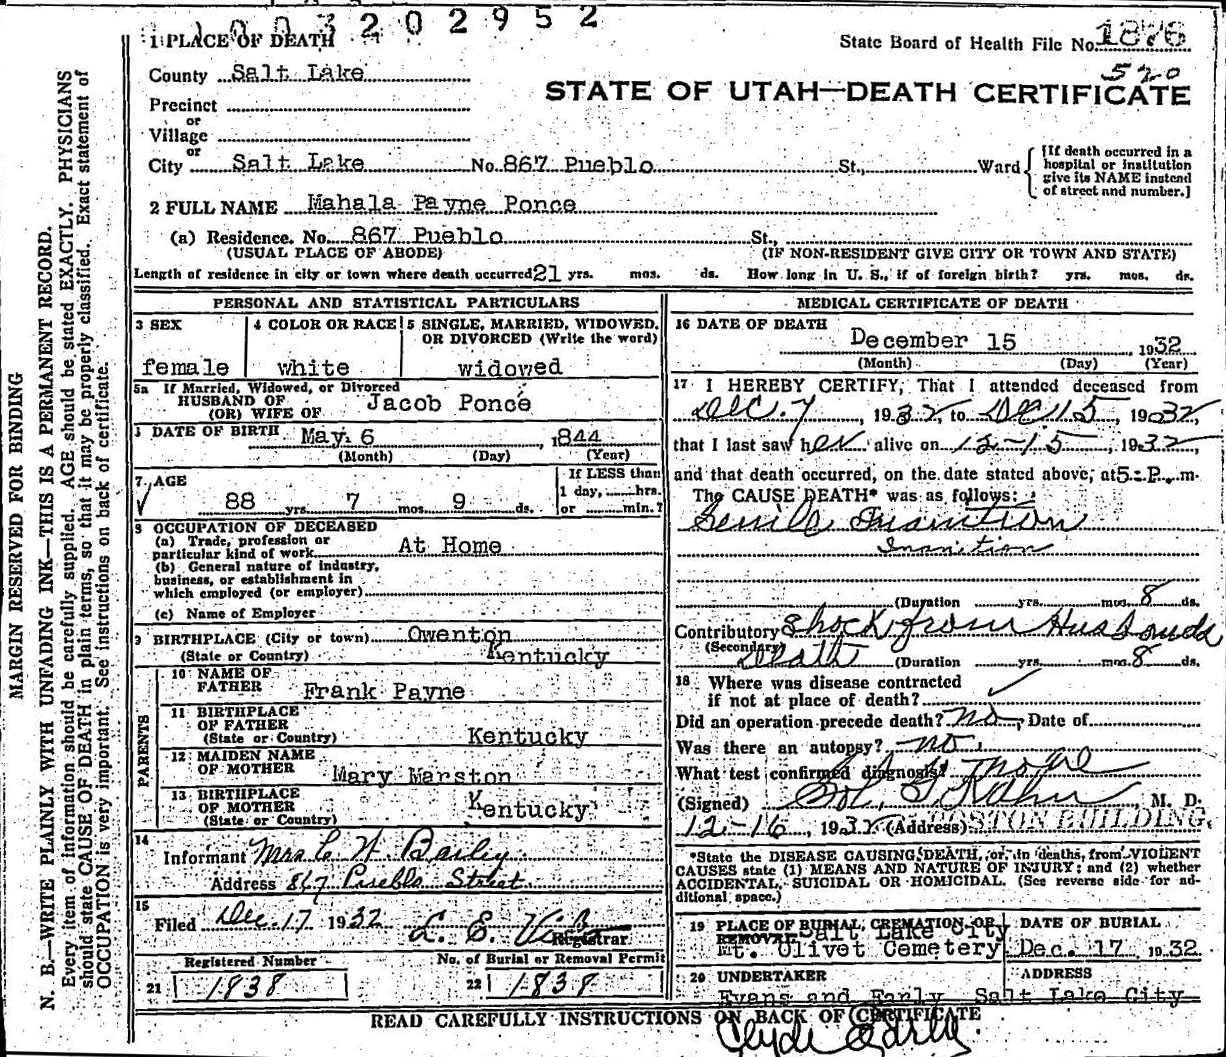 1 0 0 3 2 0 2 9 5 2
1 PLACE OF DEATH
State Board of Health File No. 1876
520
County Salt Lake
STATE OF UTAH—DEATH CERTIFICATE
Precinct
or
Village
or
City Salt Lake No. 867 Pueblo St., Ward
[If death occurred in a hospital or institution give its NAME instead of street and number.]
2 FULL NAME Mahala Payne Ponce
(a) Residence. No. 867 Pueblo St.,
(USUAL PLACE OF ABODE) (IF NON-RESIDENT GIVE CITY OR TOWN AND STATE)
Length of residence in city or town where death occurred 21 yrs. mos. ds. How long in U. S., if of foreign birth? yrs. mos. ds.
PERSONAL AND STATISTICAL PARTICULARS
3 SEX
female
4 COLOR OR RACE
white
5 SINGLE, MARRIED, WIDOWED, OR DIVORCED (Write the word)
widowed
5a If Married, Widowed, or Divorced
HUSBAND OF
(OR) WIFE OF Jacob Ponce
DATE OF BIRTH May 6 1844
(Month) (Day) (Year)
7 AGE
88 yrs. 7 mos. 9 ds.
If LESS than
1 day, hrs.
or min.?
8 OCCUPATION OF DECEASED
(a) Trade, profession or
particular kind of work At Home
(b) General nature of industry,
business, or establishment in
which employed (or employer)
(c) Name of Employer
9 BIRTHPLACE (City or town) Owenton
(State or Country) Kentucky
PARENTS
10 NAME OF
FATHER Frank Payne
11 BIRTHPLACE
OF FATHER
(State or Country) Kentucky
12 MAIDEN NAME
OF MOTHER Mary Marston
13 BIRTHPLACE
OF MOTHER
(State or Country) Kentucky
14
Informant Mrs C W Bailey
Address 867 Pueblo Street
15
Filed Dec. 17 1932 L. E.
Registrar
Registered Number
21 1838
No. of Burial or Removal Permit
22 1838
MEDICAL CERTIFICATE OF DEATH
16 DATE OF DEATH
December 15 1932
(Month) (Day) (Year)
17 I HEREBY CERTIFY, That I attended deceased from
Dec. 7 1932, to Dec 15, 1932,
that I last saw her alive on 12-15, 1932
and that death occurred, on the date stated above, at 5 P. m.
The CAUSE DEATH* was as follows:
Senile Inanition
Inanition
(Duration yrs. mos. 8 ds.
Contributory Shock from Husbands
(Secondary) Death (Duration yrs. mos. 8 ds.
18 Where was disease contracted
if not at place of death?
Did an operation precede death? no, Date of
Was there an autopsy? no.
What test confirmed diagnosis? none
(Signed) Sol. G Kahn, M. D.
12-16, 1932 (Address) BOSTON BUILDING
*State the DISEASE CAUSING DEATH, or, in deaths, from VIOLENT
CAUSES state (1) MEANS AND NATURE OF INJURY; and (2) whether
ACCIDENTAL, SUICIDAL OR HOMICIDAL. (See reverse side for ad-
ditional space.)
19 PLACE OF BURIAL, CREMATION, OR
REMOVAL Salt Lake City
Mt. Olivet Cemetery
DATE OF BURIAL
Dec. 17 1932
20 UNDERTAKER
Evans and Early
ADDRESS
Salt Lake City
READ CAREFULLY INSTRUCTIONS ON BACK OF CERTIFICATE
Clyde Early
MARGIN RESERVED FOR BINDING
N. B.—WRITE PLAINLY WITH UNFADING INK—THIS IS A PERMANENT RECORD.
Every item of information should be carefully supplied. AGE should be stated EXACTLY. PHYSICIANS
should state CAUSE OF DEATH in plain terms, so that it may be properly classified. Exact statement of
OCCUPATION is very important. See instructions on back of certificate.